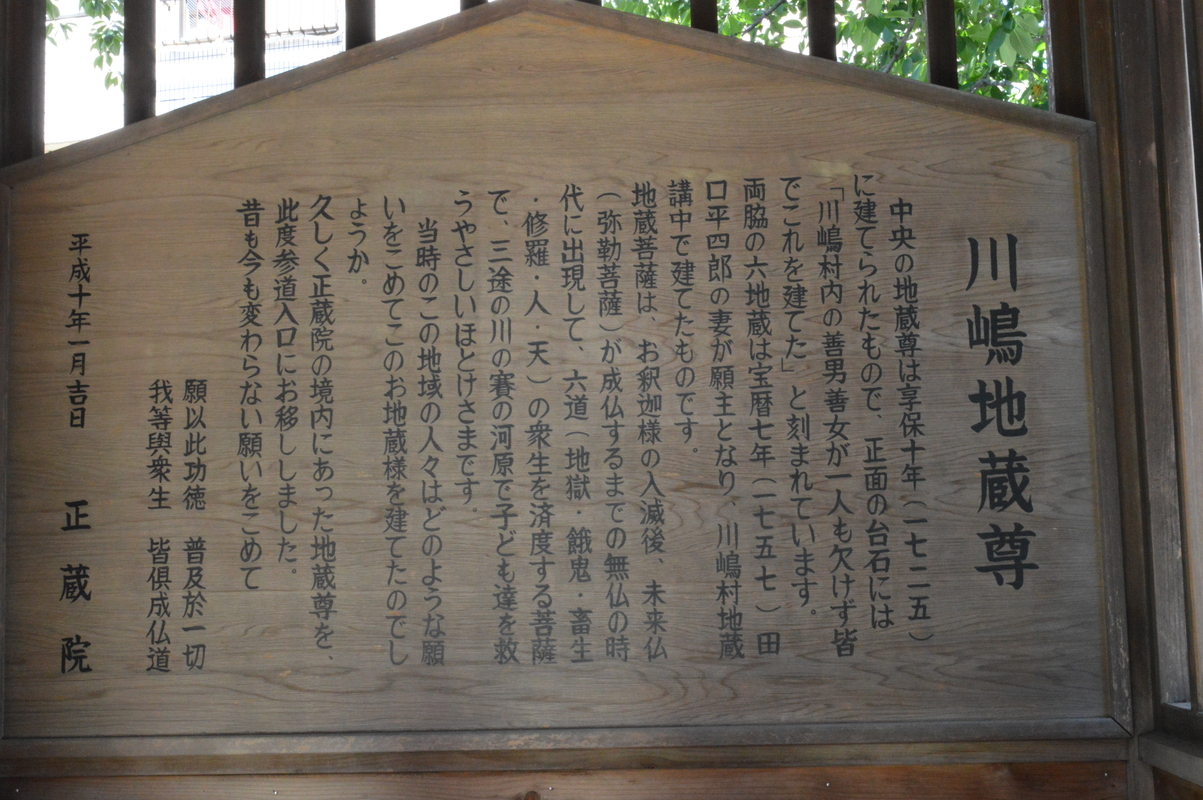 川嶋地蔵尊
中央の地蔵尊は享保十年（一七二五）
に建てられたもので、正面の台石には
「川嶋村内の善男善女が一人も欠けず皆
でこれを建てた」と刻まれています。
両脇の六地蔵は宝暦七年（一七五七）田
口平四郎の妻が願主となり、川嶋村地蔵
講中で建てたものです。
地蔵菩薩は、お釈迦様の入滅後、未来仏
（弥勒菩薩）が成仏するまでの無仏の時
代に出現して、六道（地獄・餓鬼・畜生
・修羅・人・天）の衆生を済度する菩薩
で、三途の川の賽の河原で子ども達を救
うやさしいほとけさまです。
当時のこの地域の人々はどのような願
いをこめてこのお地蔵様を建てたのでし
ょうか。
久しく正蔵院の境内にあった地蔵尊を、
此度参道入口にお移ししました。
昔も今も変わらない願いをこめて
願以此功徳　普及於一切
我等與衆生　皆倶成仏道
平成十年一月吉日　正蔵院